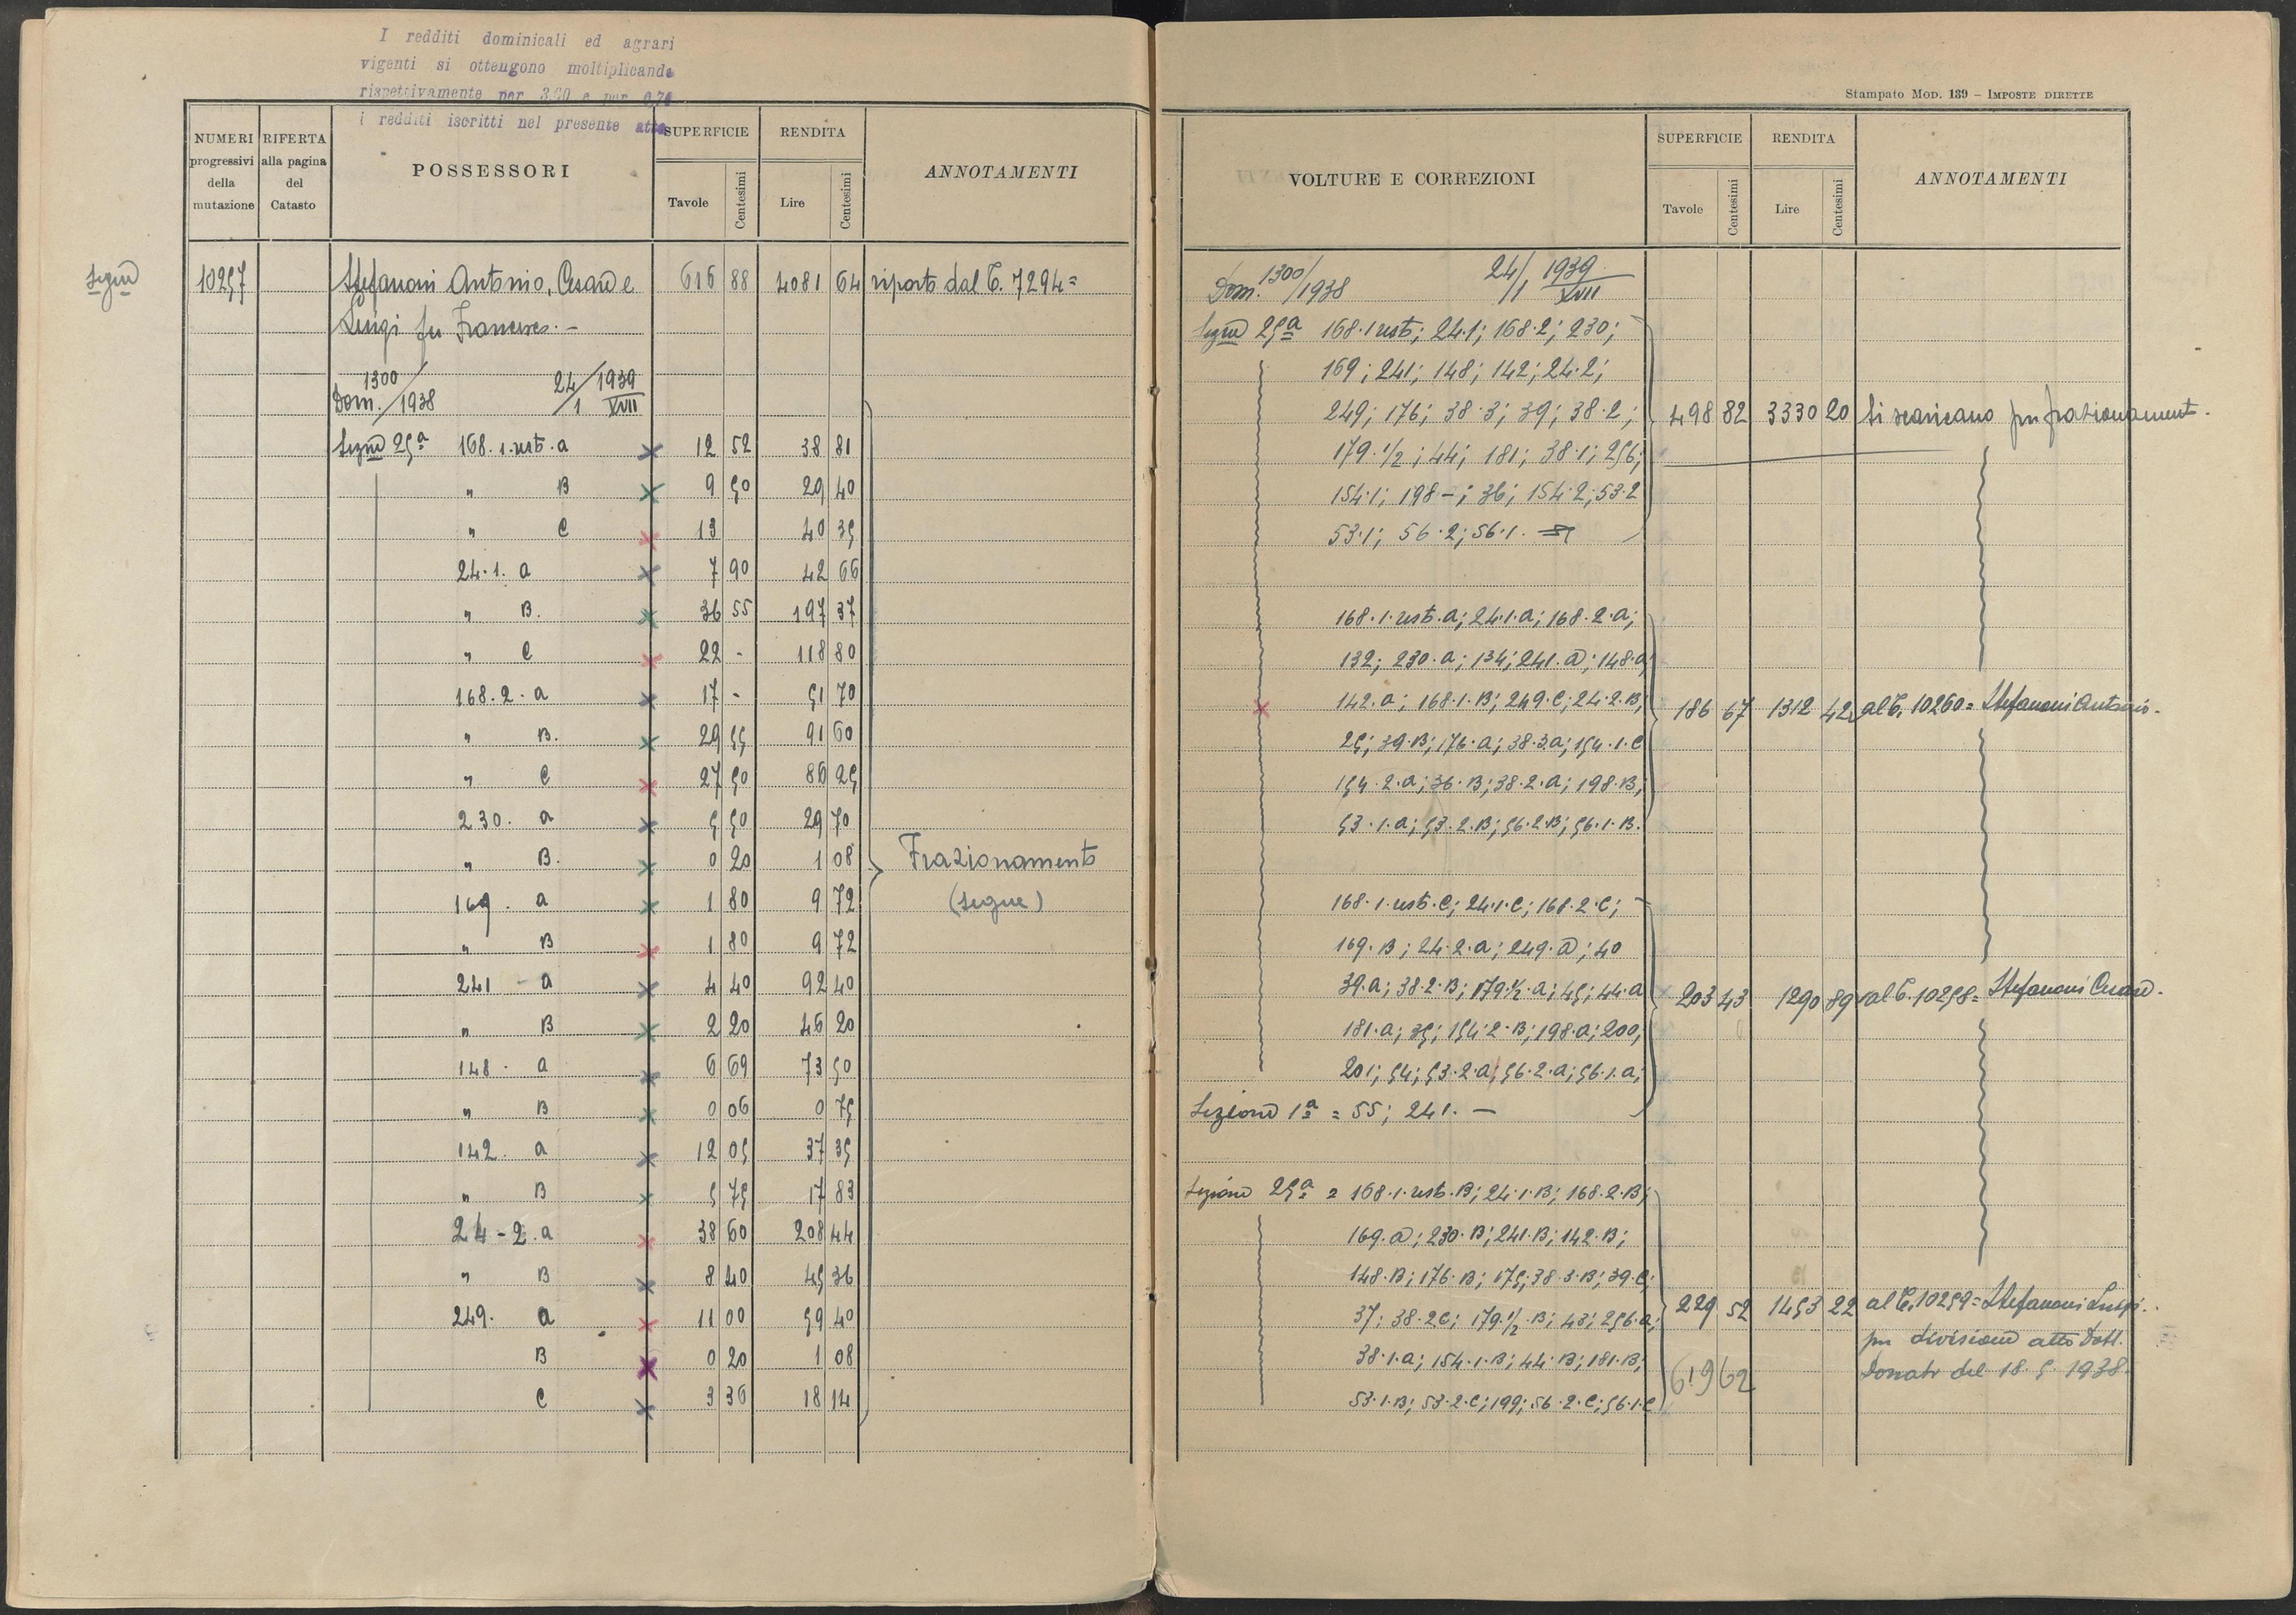 I redditi dominicali ed agrari
vigenti si ottengono moltiplicando
rispettivamente per 3,20 e per 0,70
i redditi iscritti nel presente atto
NUMERI progressivi della mutazione
RIFERTA alla pagina del Catasto
POSSESSORI
SUPERFICIE
Tavole Centesimi
RENDITA
Lire Centesimi
ANNOTAMENTI
Segue 10257 Stefanoni Antonio, Cesare e 616 88 4081 64 riporto dal C. 7294=
Luigi fu Francesco. -
Dom. 1300/1938 24/1 1939 XVII
Segue 25ª 168.1.rest.a 12 52 38 81
" B 9 50 29 40
" C 13 40 35
24.1. a 7 90 42 66
" B. 36 55 197 37
" C 22 - 118 80
168.2.a 17 - 51 70
" B. 29 55 91 60
" C 27 50 86 25
230. a 5 50 29 70
" B. 0 20 1 08
169. a 1 80 9 72
" B 1 80 9 72
241 - a 4 40 92 40
" B 2 20 46 20
148. a 6 69 73 50
" B 0 06 0 75
142. a 12 05 37 35
" B 5 75 17 83
24-2.a 38 60 208 44
" B 8 40 45 36
249. a 11 00 59 40
B 0 20 1 08
C 3 36 18 14
Frazionamento
(segue)
Stampato MOD. 139 - IMPOSTE DIRETTE
VOLTURE E CORREZIONI
SUPERFICIE
Tavole Centesimi
RENDITA
Lire Centesimi
ANNOTAMENTI
Dom. 1300/1938 24/1 1939 XVII
Segue 25ª 168.1 rest; 24.1; 168.2; 230;
169; 241; 148; 142; 24.2;
249; 176; 38.3; 39; 38.2; 498 82 3330 20 Si scaricano per frazionamento.
179.1/2; 44; 181; 38.1; 256;
154.1; 198-; 36; 154.2; 53.2
53.1; 56.2; 56.1.
168.1.rest.a; 24.1.a; 168.2.a;
132; 230.a; 134; 241.a; 148.a
142.a; 168.1.B; 249.C; 24.2.B; 186 67 1312 42 al C. 10260= Stefanoni Antonio.
25; 39.B; 176.a; 38.3.a; 154.1.C
154.2.a; 36.B; 38.2.a; 198.B;
53.1.a; 53.2.B; 56.2.B; 56.1.B.
168.1.rest.C; 24.1.C; 168.2.C;
169.B; 24.2.a; 249.a; 40
39.a; 38.2.B; 179.1/2.a; 45; 44.a 203 43 1290 89 al C. 10258= Stefanoni Cesare.
181.a; 35; 154.2.B; 198.a; 200;
201; 54; 53.2.a; 56.2.a; 56.1.a;
Sezione 1ª = 55; 241. -
Sezione 25ª = 168.1.rest.B; 24.1.B; 168.2.B;
169.a; 230.B; 241.B; 142.B;
148.B; 176.B; 175; 38.3.B; 39.C;
37; 38.2C; 179.1/2.B; 43; 256.a; 229 52 1453 22 al C. 10259= Stefanoni Luigi.
38.1.a; 154.1.B; 44.B; 181.B; per divisione atto Dott.
53.1.B; 53.2.C; 199; 56.2.C; 56.1.C 619 62 Donati del 18.5.1938.